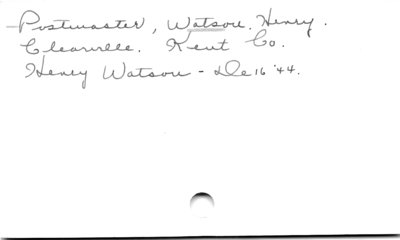 Postmaster, Watson. Henry.
Clearville. Kent Co.
Henry Watson - De 16 '44.